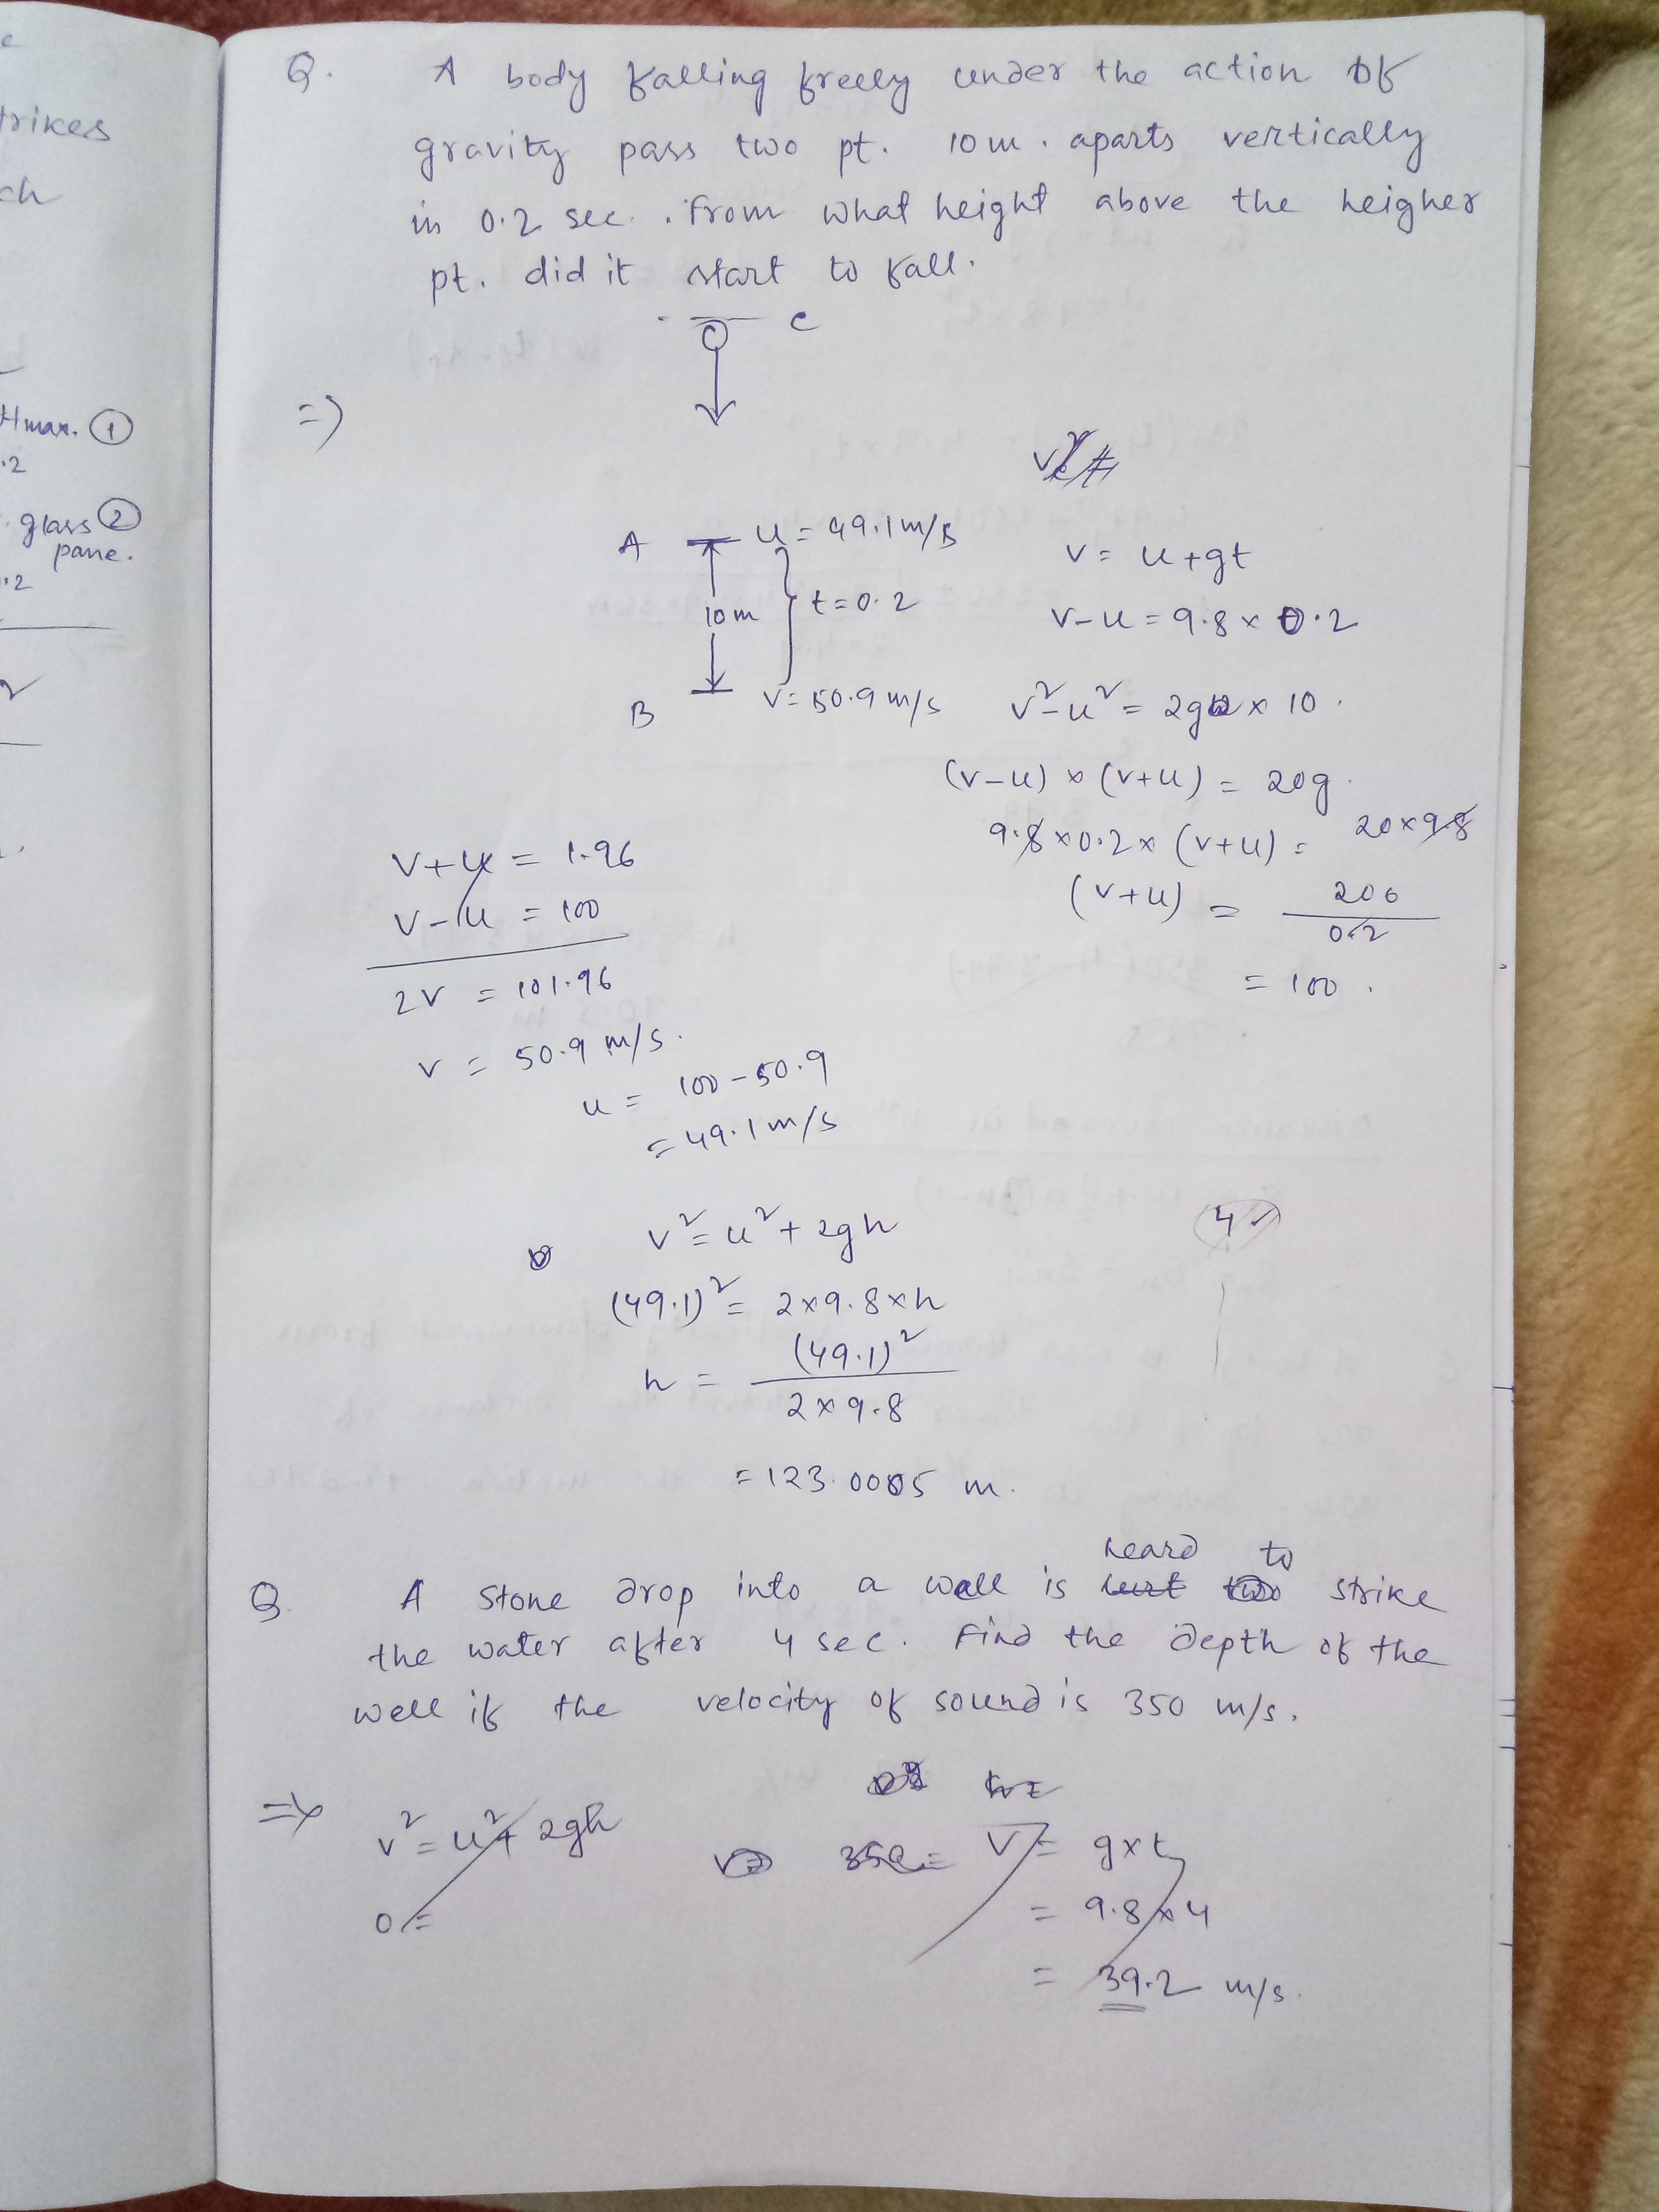 trikes
ch
Hmax. ①
.2
glass ②
pane.
Q. A body falling freely under the action of
gravity pass two pt. 10 m. aparts vertically
in 0.2 sec. . From what height above the heigher
pt. did it start to fall.
C
=>
A u = 49.1 m/s
10 m t = 0.2
B v = 50.9 m/s
v = u + gt
v - u = 9.8 × 0.2
v² - u² = 2g × 10 .
(v-u) × (v+u) = 20g.
9.8 × 0.2 × (v+u) = 20 × 9.8
(v+u) = 200 / 0.2
= 100 .
v + u = 1.96
v - u = 100
2v = 101.96
v = 50.9 m/s.
u = 100 - 50.9
= 49.1 m/s
v² = u² + 2gh
(49.1)² = 2 × 9.8 × h
h = (49.1)² / 2 × 9.8
= 123.0005 m.
Q. A stone drop into a well is heard to strike
the water after 4 sec. Find the depth of the
well if the velocity of sound is 350 m/s.
=>
v² = u² + 2gh
0 =
v = g × t
= 9.8 × 4
= 39.2 m/s.